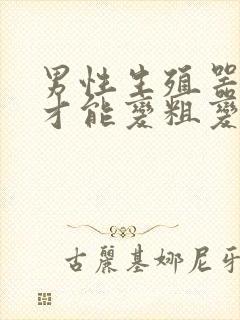 男性生殖器
才能變粗變
古麗基娜尼牙